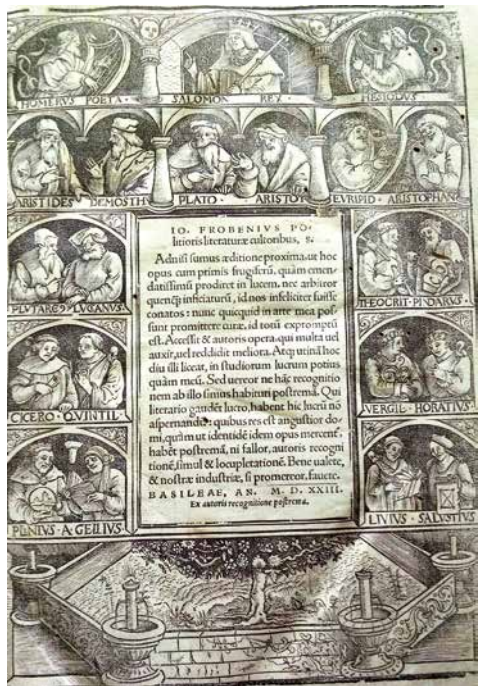 HOMERVS POETA · SALOMON REX · HESIODVS
ARISTIDES DEMOSTH PLATO · ARISTOT EVRIPID · ARISTOPHAN
PLVTARC9 LVCANVS
THEOCRIT · PINDARVS ·
CICERO QVINTIL
VERGIL · HORATIVS
PLINIVS · A · GELLIVS
LIVIVS · SALVSTIVS
IO. FROBENIVS PO-
litioris literaturæ cultoribus, s.
Adnisi sumus æditione proxima, ut hoc
opus cum primis frugiferū, quàm emen-
datissimū prodiret in lucem. nec arbitror
quenq̄ inficiaturū, id nos infeliciter fuisse
conatos: nunc quicquid in arte mea pos-
sunt promittere curæ, id totū expromptū
est. Accessit & autoris opera, qui multa uel
auxit, uel reddidit meliora. Atq; utinā hoc
diu illi liceat, in studiorum lucrum potius
quàm meū. Sed uereor ne hāc recognitio
nem ab illo simus habituri postremā. Qui
literario gaudēt lucro, habent hic lucrū nō
aspernandū: quibus res est angustior do-
mi, quàm ut identidē idem opus mercent̄,
habēt postremā, ni fallor, autoris recogni
tionē, simul & locupletationē. Bene ualete,
& nostræ industriæ, si promereor, fauete.
BASILEAE, AN. M. D. XXIII.
Ex autoris recognitione postrema.